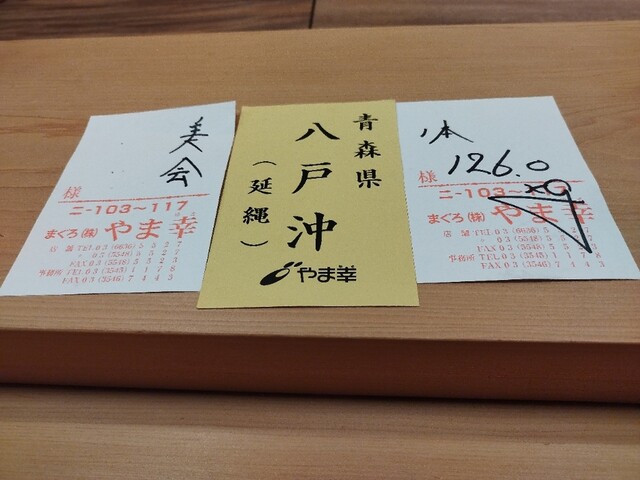 美会
様
ニ-103~117
まぐろ(株)やま幸
店舗 TEL 03 (6636) 5 3 2 7
〃 03 (5548) 5 5 2 7
FAX 03 (5548) 5 5 2 1
事務所 TEL 03 (3545) 1 1 7 8
FAX 03 (3546) 7 4 4 3
青森県
八戸沖
(延縄)
やま幸
1本
様
126.0
ニ-103~
まぐろ(株)やま幸
店舗 TEL 03 (6636) 5
〃 03 (5548) 5
FAX 03 (5548) 5
事務所 TEL 03 (3545) 1 1 7 8
FAX 03 (3546) 7 4 4 3